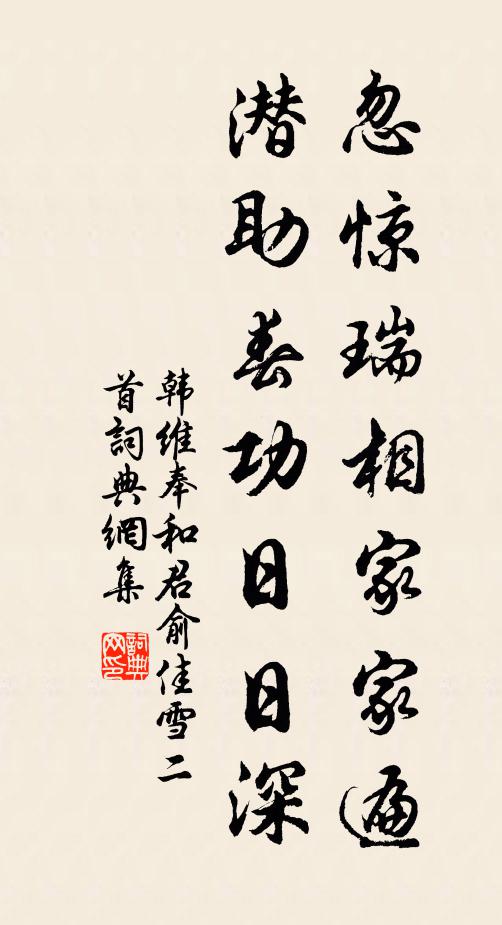 忽惊瑞相家家遍
潜助春功日日深
韩维奉和君俞佳雪二
首詞典網集
詞典
网印